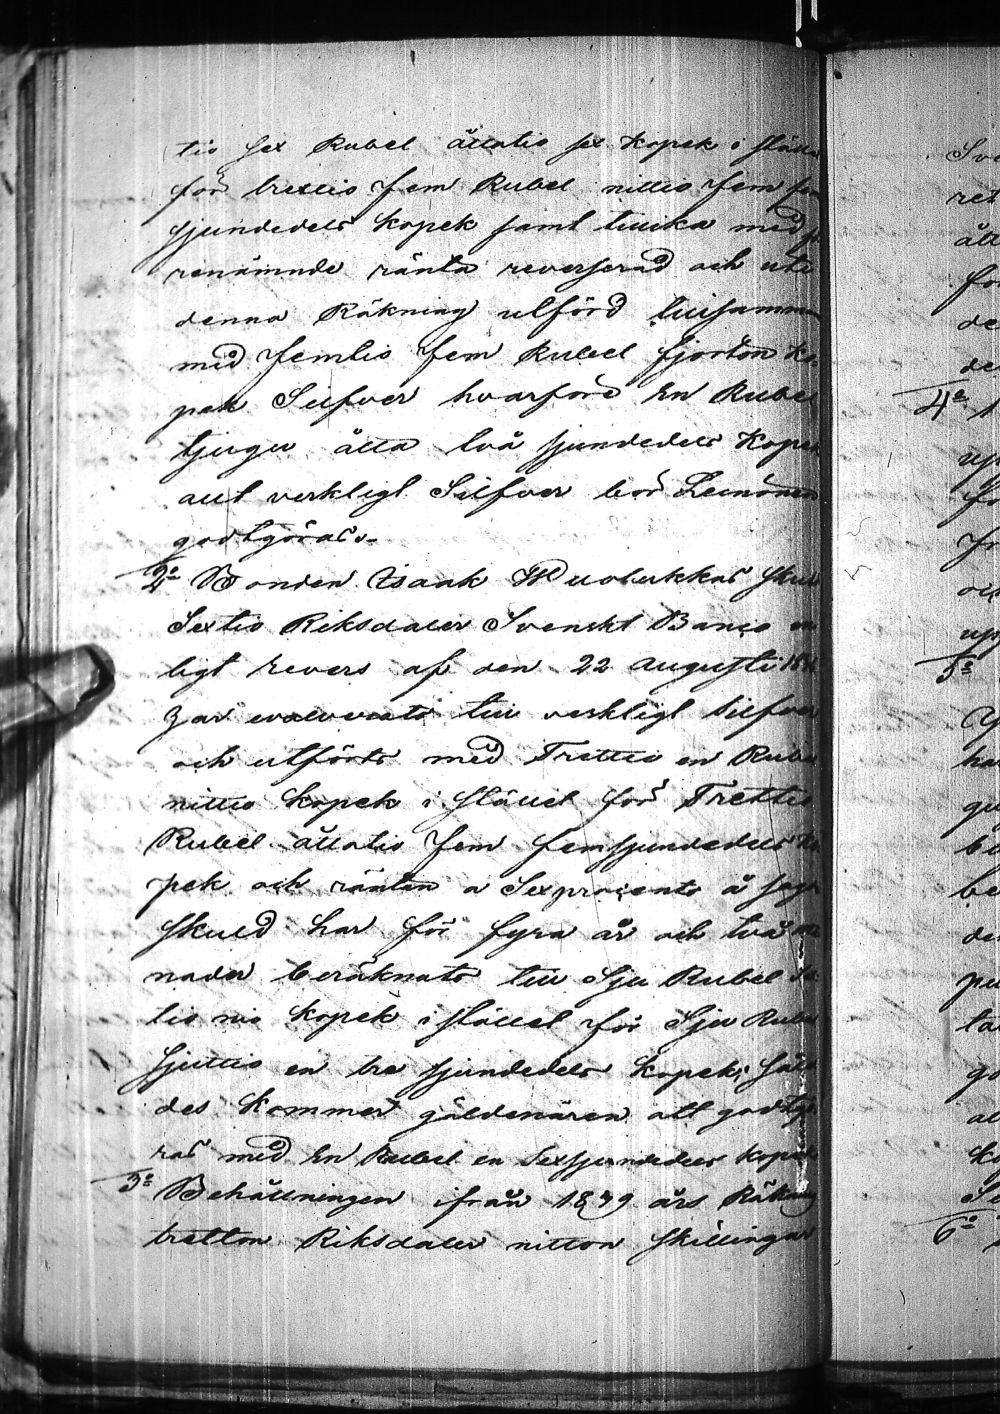 tio sex Rubel åttatio sex Kopek i ställe
för trettio fem Rubel nittio fem fem
sjundedels Kopek samt tillika med
renämnde ränta reverserad och uti
denna Räkning utförd tillsamman
med femtio fem Rubel fjorton Ko
pek Silfver hvarföre En Rubel
tjugu åtta två sjundedels Kopek
allt verkligt Silfver bör
godtgöras.
2o Bonden Isaak skuld
Sextio Riksdaler Svenskt Banco en
ligt revers af den 22 Augusti
har evalverats till verkligt Silfver
och utförts med Trettio en Rubel
nittio Kopek i stället för Trettio
Rubel åttatio fem femsjundedels Ko
pek och räntan a Sex procento å sagde
skuld har för fyra år och två må
nader beräknats till Sju Rubel
tio nio Kopek i stället för Sju Rubel
sjuttio en tre sjundedels Kopek; Såle
des kommer gäldenären att godtgö
ras med En Rubel en Sexsjundedels kopek
3o Behållningen ifrån 1839 års Räkning
tretton Riksdaler nitton skillingar
Sve
ret
åtta
för
de
de
4o
up
fö
oc
up
5o
ha
gu
be
de
pe
ta
go
al
Ko
6o